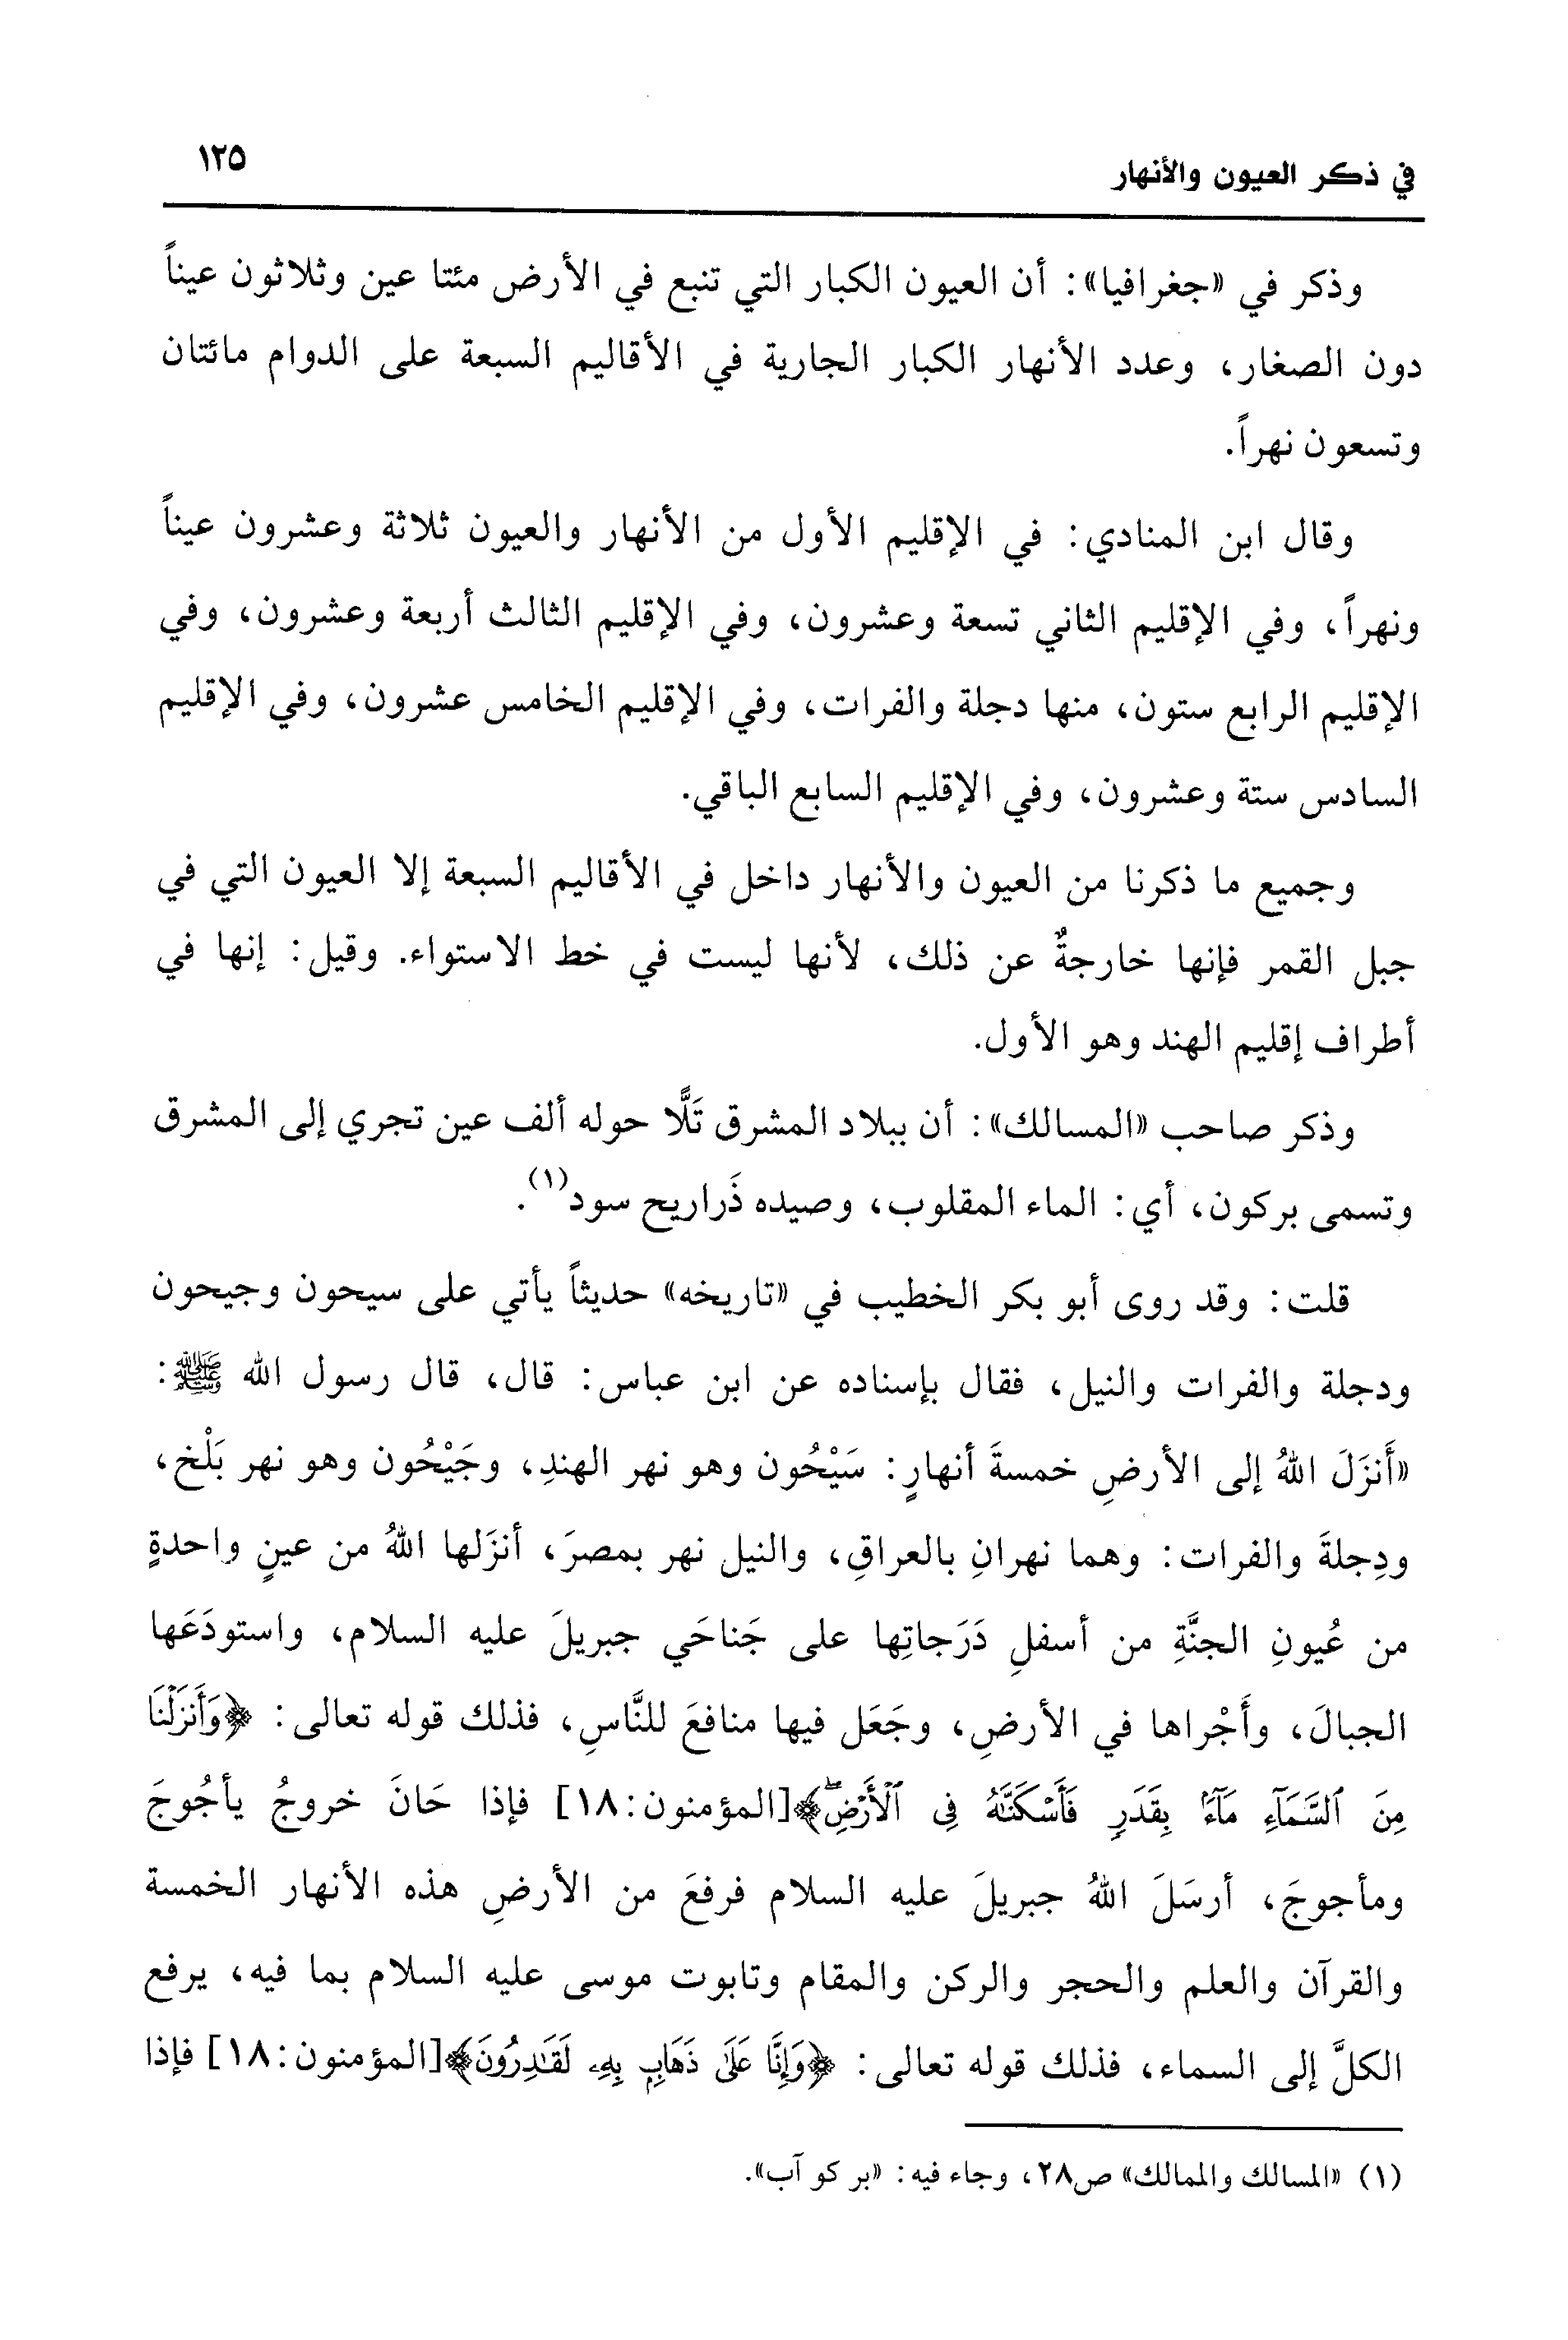 في ذكر العيون والأنهار
١٢٥
وذكر في «جغرافيا»: أن العيون الكبار التي تنبع في الأرض مئتا عين وثلاثون عيناً
دون الصغار، وعدد الأنهار الكبار الجارية في الأقاليم السبعة على الدوام مائتان
وتسعون نهراً.
وقال ابن المنادي: في الإقليم الأول من الأنهار والعيون ثلاثة وعشرون عيناً
ونهراً، وفي الإقليم الثاني تسعة وعشرون، وفي الإقليم الثالث أربعة وعشرون، وفي
الإقليم الرابع ستون، منها دجلة والفرات، وفي الإقليم الخامس عشرون، وفي الإقليم
السادس ستة وعشرون، وفي الإقليم السابع الباقي.
وجميع ما ذكرنا من العيون والأنهار داخل في الأقاليم السبعة إلا العيون التي في
جبل القمر فإنها خارجةٌ عن ذلك، لأنها ليست في خط الاستواء. وقيل: إنها في
أطراف إقليم الهند وهو الأول.
وذكر صاحب «المسالك»: أن ببلاد المشرق تَلًّا حوله ألف عين تجري إلى المشرق
وتسمى بركون، أي: الماء المقلوب، وصيده ذَراريح سود(١).
قلت: وقد روى أبو بكر الخطيب في «تاريخه» حديثاً يأتي على سيحون وجيحون
ودجلة والفرات والنيل، فقال بإسناده عن ابن عباس: قال، قال رسول الله ﷺ:
«أَنزَلَ اللهُ إلى الأرضِ خمسةَ أنهارٍ: سَيْحُون وهو نهر الهندِ، وجَيْحُون وهو نهر بَلْخ،
ودِجلةَ والفرات: وهما نهرانِ بالعراقِ، والنيل نهر بمصرَ، أنزَلها اللهُ من عينٍ واحدةٍ
من عُيونِ الجنَّةِ من أسفلِ دَرَجاتِها على جَناحَي جبريلَ عليه السلام، واستودَعَها
الجبالَ، وأَجْراها في الأرضِ، وجَعَل فيها منافعَ للنَّاسِ، فذلك قوله تعالى: ﴿وَأَنزَلْنَا
مِنَ ٱلسَّمَآءِ مَآءًۢ بِقَدَرٍ فَأَسْكَنَّٰهُ فِى ٱلْأَرْضِۖ﴾[المؤمنون:١٨] فإذا حَانَ خروجُ يأجُوجَ
ومأجوجَ، أرسَلَ اللهُ جبريلَ عليه السلام فرفعَ من الأرضِ هذه الأنهار الخمسة
والقرآن والعلم والحجر والركن والمقام وتابوت موسى عليه السلام بما فيه، يرفع
الكلَّ إلى السماء، فذلك قوله تعالى: ﴿وَإِنَّا عَلَىٰ ذَهَابٍۭ بِهِۦ لَقَٰدِرُونَ﴾[المؤمنون:١٨] فإذا
(١) «المسالك والممالك» ص٢٨، وجاء فيه: «بر كو آب».